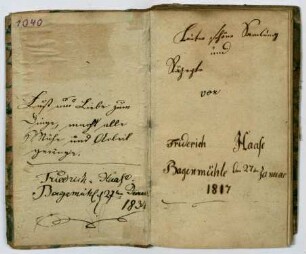 1040
Lust und Liebe zum
Dinge, macht alle
Mühe und Arbeit
geringe.
Friedrich. Haase.
Hagemühl, 27ten
1834
schöne Samlung
und
Rezepte
von
Friderich Haase
Hagenmühle den 27ten Januar
1817